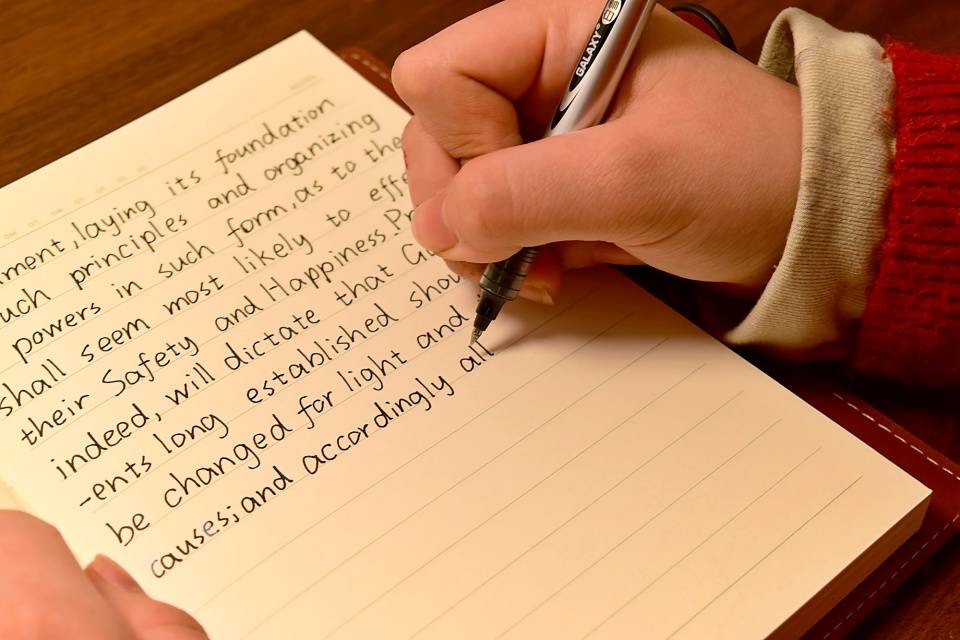 laying its foundation
principles and organizing
powers in such form, as to the
shall seem most likely to
their Safety and Happiness
indeed, will dictate that
-ents long established
be changed for light and
causes; and accordingly all
GALAXY